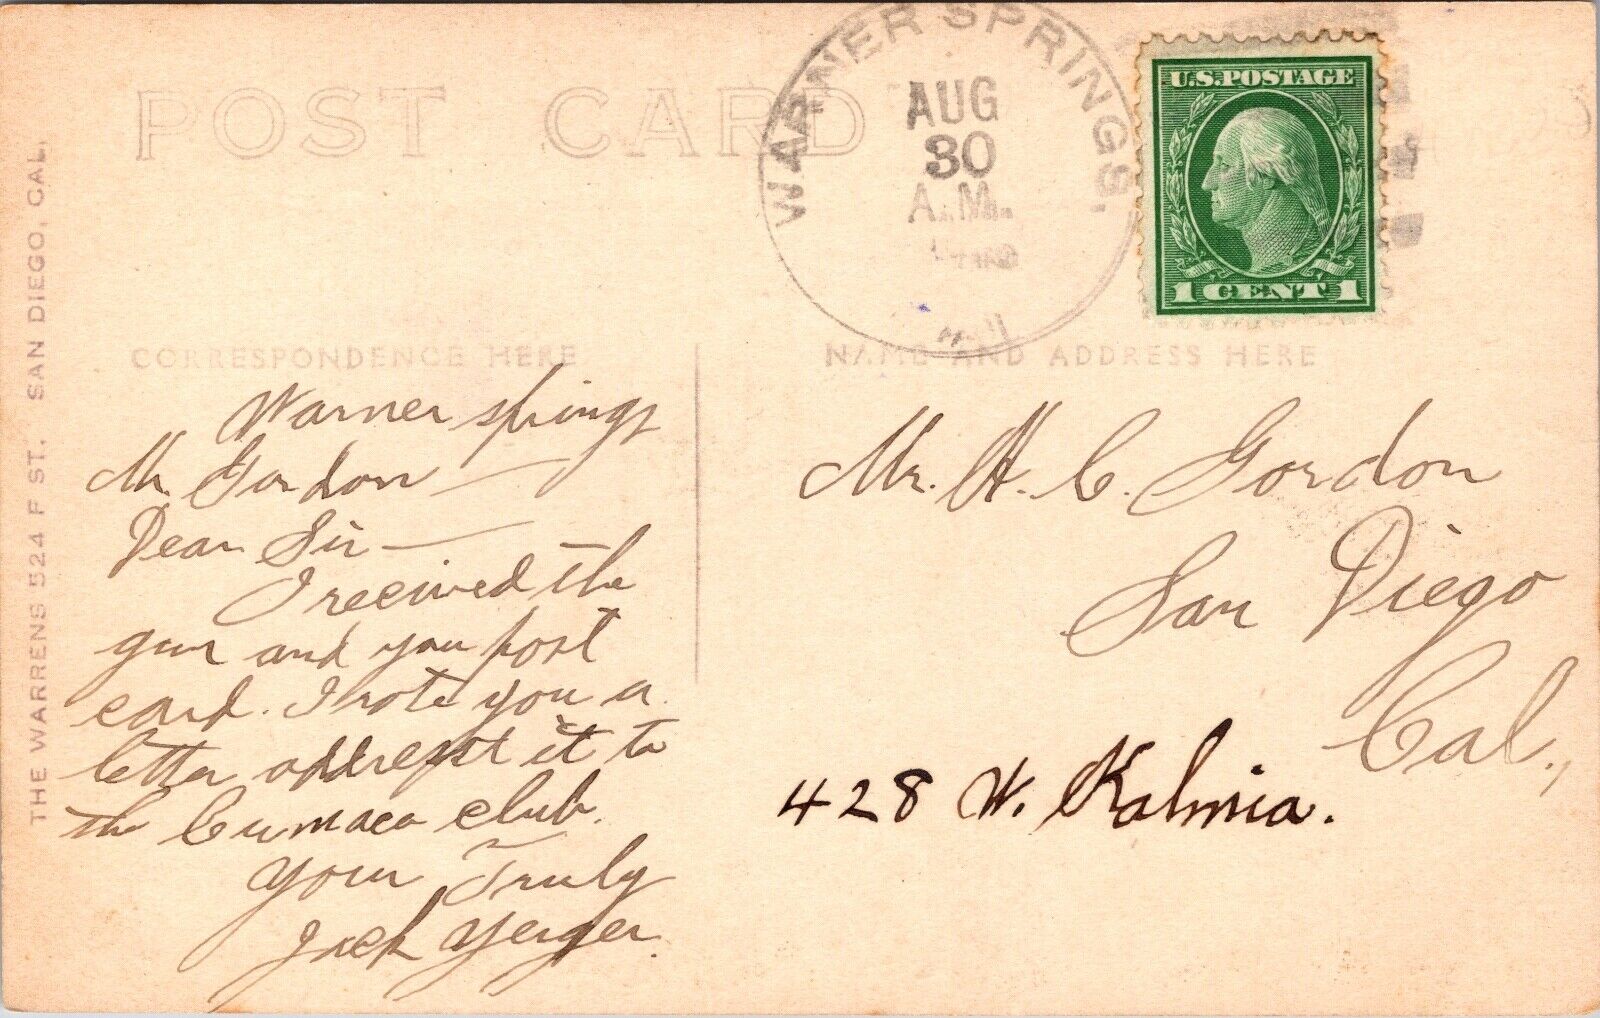 POST CARD
WARNER SPRINGS.
AUG
30
A.M.
U.S. POSTAGE
1 CENT 1
CORRESPONDENCE HERE
NAME AND ADDRESS HERE
THE WARRENS 524 F ST. SAN DIEGO, CAL.
Warner springs
Mr. Gordon —
Dear Sir —
I recived the
gun and you post
card. I rote you a
letter addresst it to
the Cumaca club.
Your Truly
Jack Yerger.
Mr. H. C. Gordon
San Diego
Cal.,
428 W. Kalmia.